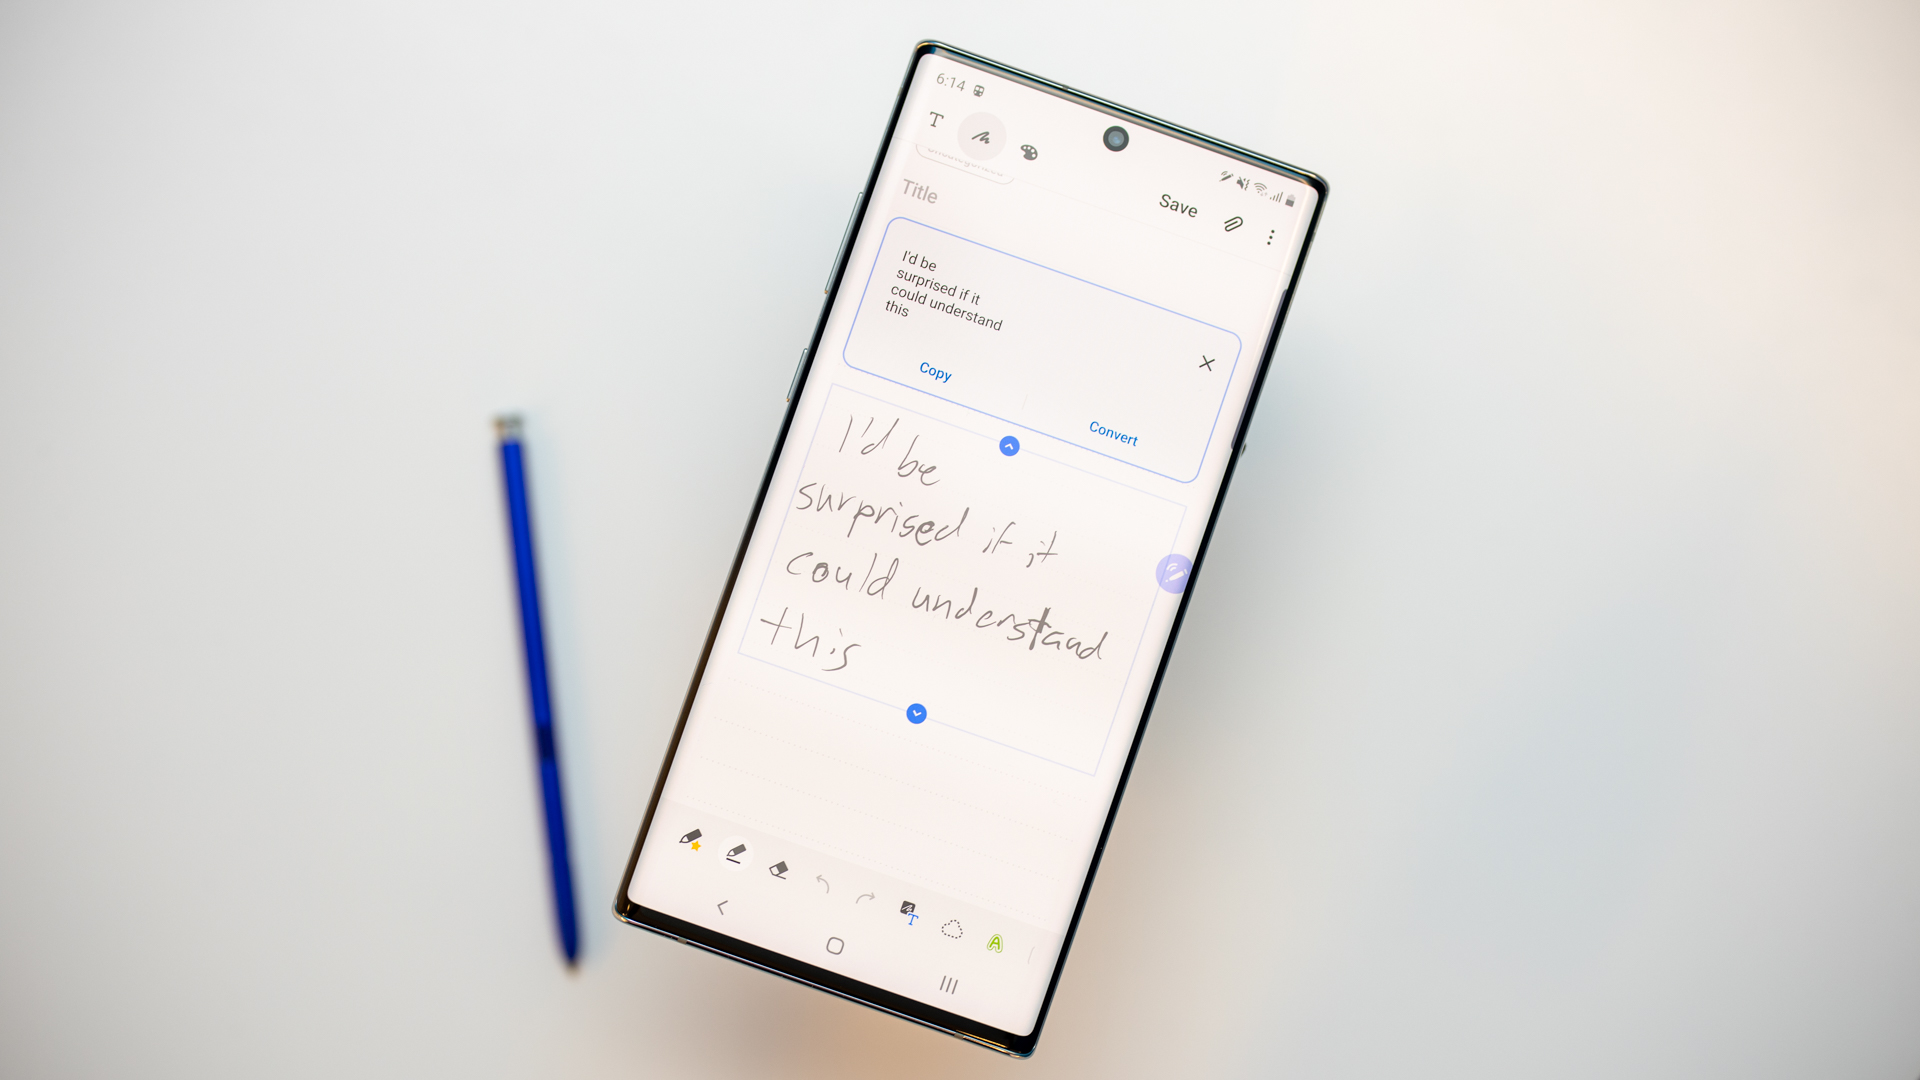 6:14
T
Title
Save
I'd be
surprised if it
could understand
this
Copy
Convert
I'd be
surprised if it
could understand
this
T
A